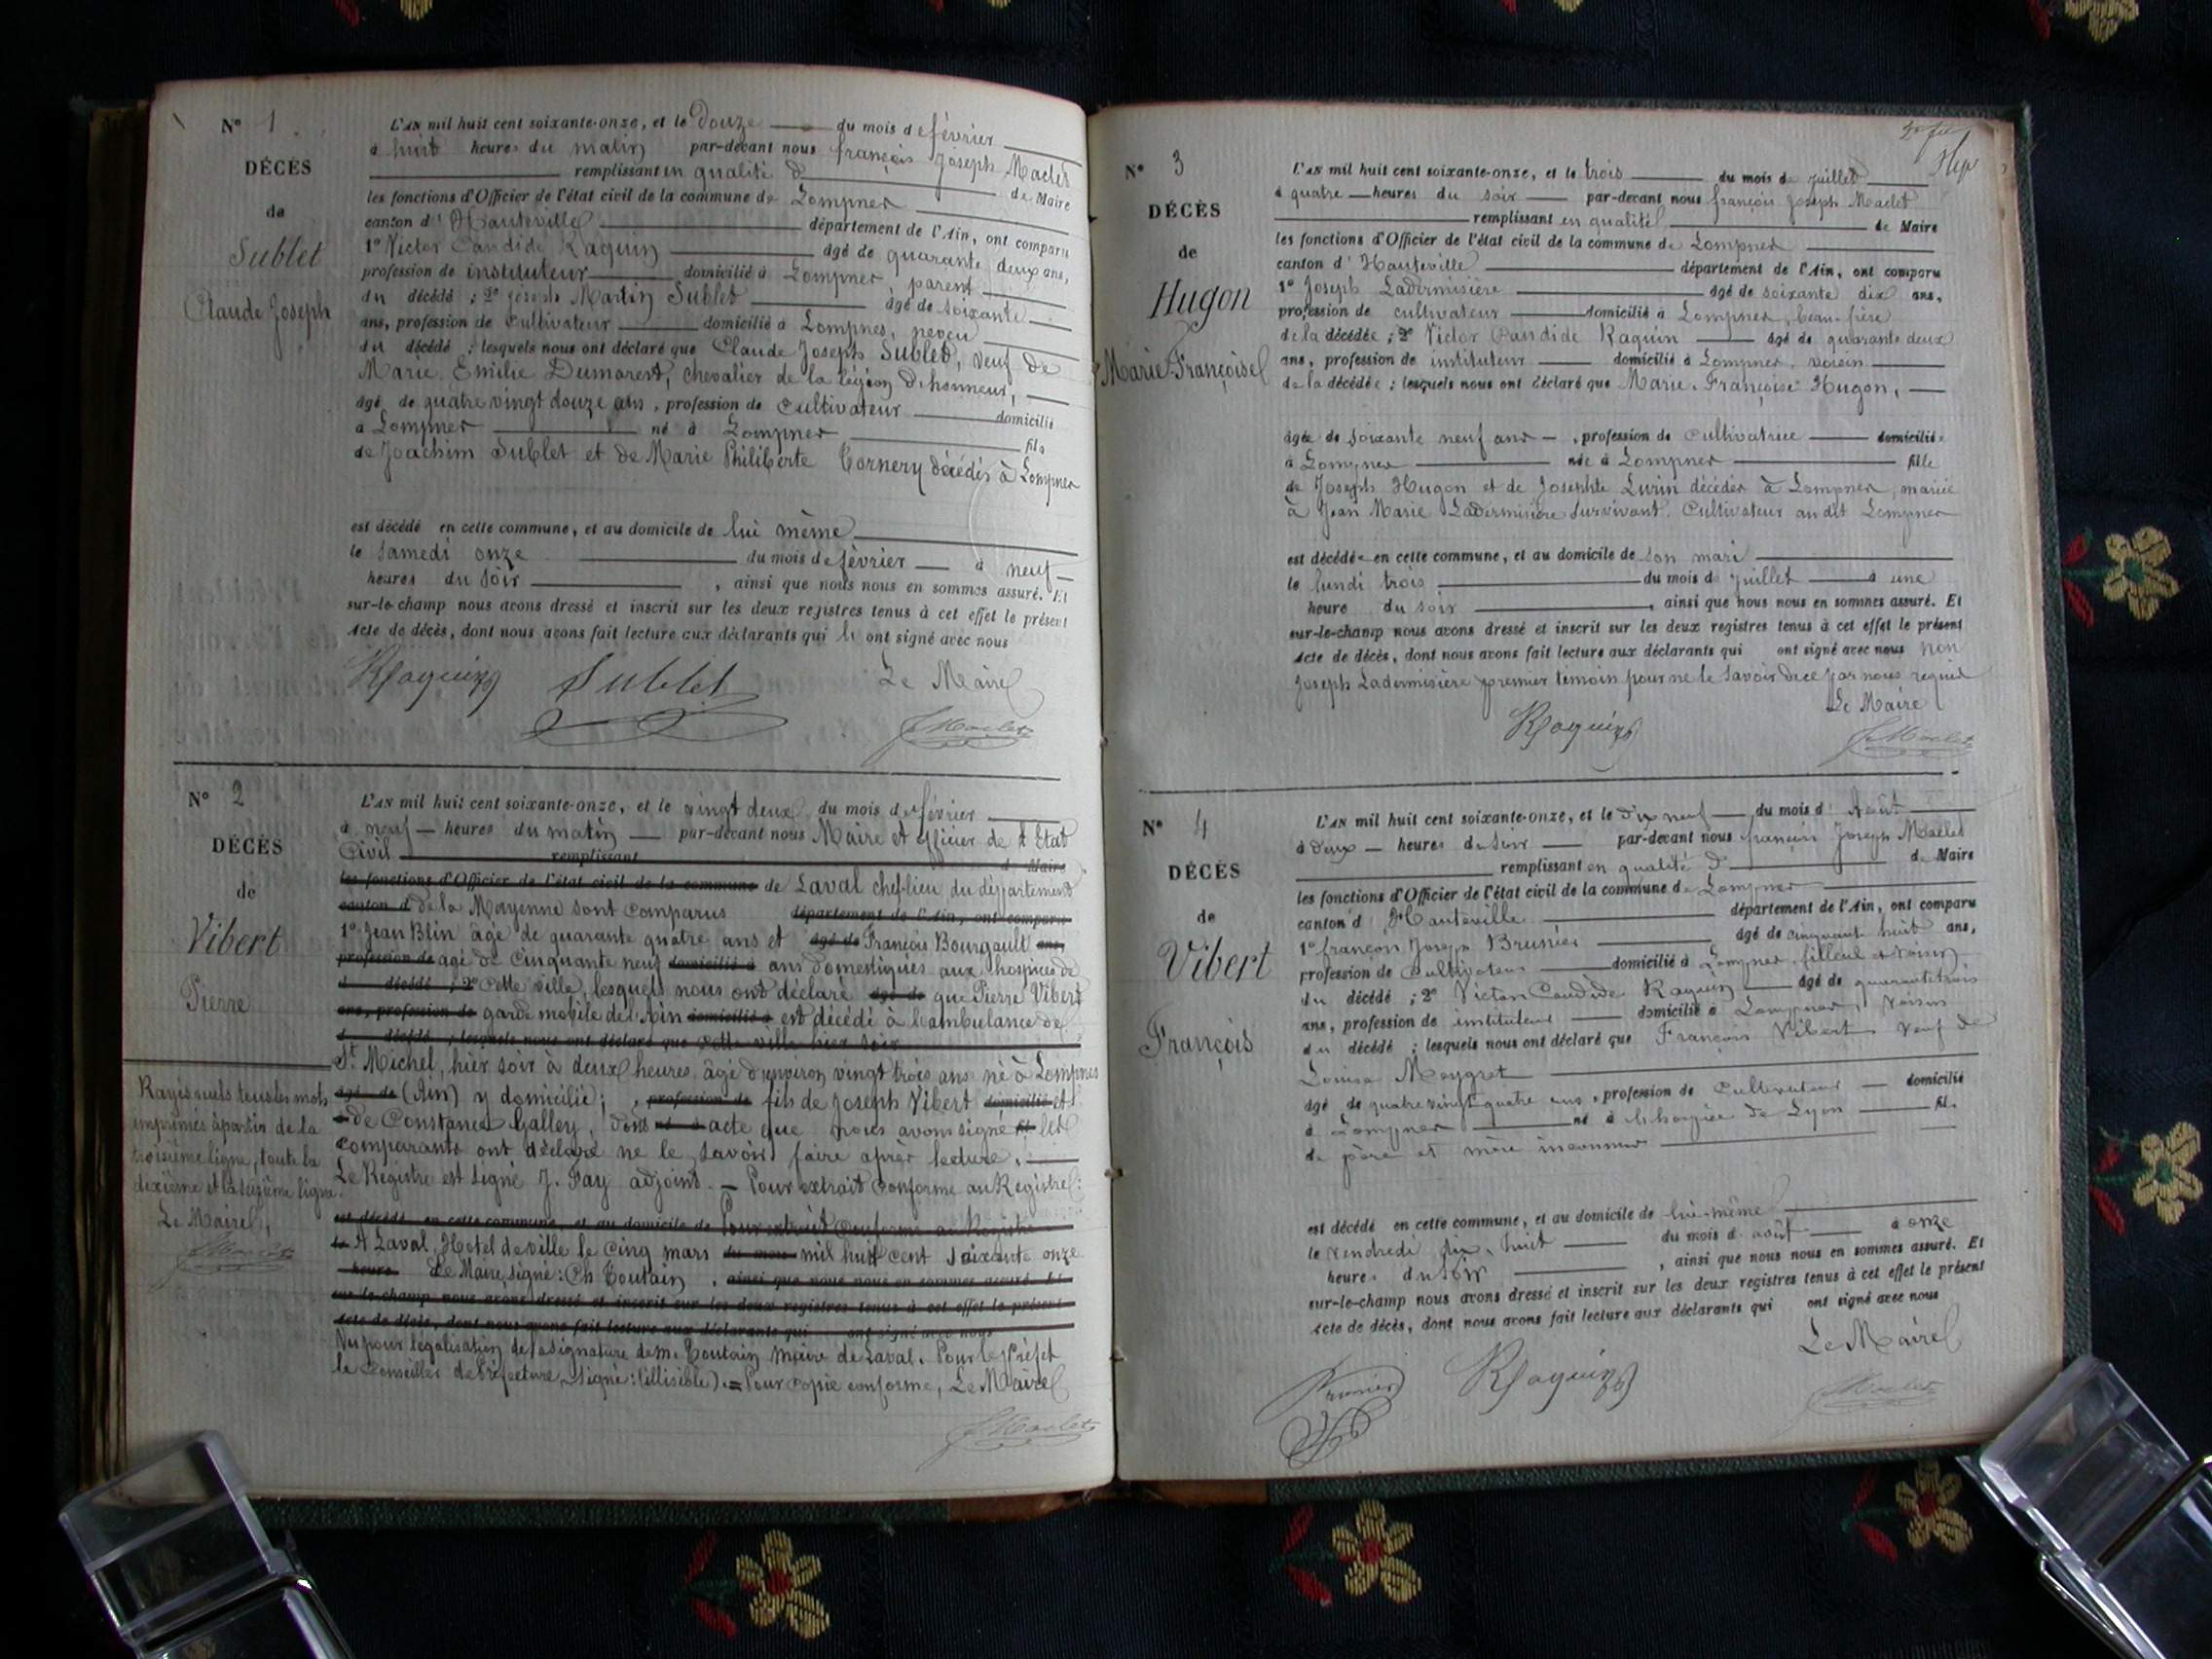 N° 1.
DÉCÈS
de
Sublet
Claude Joseph
L'AN mil huit cent soixante-onze, et le douze du mois de février
à huit heures du matin par-devant nous françois Joseph Maclet
remplissant en qualité de Maire
les fonctions d'Officier de l'état civil de la commune de Lompnes
canton d'Hauteville département de l'Ain, ont comparu
1° Victor Candide Raquin âgé de quarante deux ans,
profession de instituteur domicilié à Lompnes, parent
du décédé ; 2° Joseph Martin Sublet âgé de soixante
ans, profession de cultivateur domicilié à Lompnes, neveu
du décédé ; lesquels nous ont déclaré que Claude Joseph Sublet, veuf de
Marie Emilie Dumarest, chevalier de la légion d'honneur,
âgé de quatre vingt douze ans, profession de Cultivateur domicilié
à Lompnes né à Lompnes fils
de Joachim Sublet et de Marie Philiberte Cornery décédés à Lompnes
est décédé en cette commune, et au domicile de lui même
le samedi onze du mois de février à neuf
heures du soir, ainsi que nous nous en sommes assuré. Et
sur-le-champ nous avons dressé et inscrit sur les deux registres tenus à cet effet le présent
Acte de décès, dont nous avons fait lecture aux déclarants qui ont signé avec nous
Raquin Sublet Le Maire
Maclet
N° 2
DÉCÈS
de
Vibert
Pierre
L'AN mil huit cent soixante-onze, et le vingt deux du mois de février
à neuf heures du matin par-devant nous Maire et officier de l'Etat
Civil remplissant de Maire
les fonctions d'Officier de l'état civil de la commune de Laval chef-lieu du département
canton d de la Mayenne sont comparus département de l'Ain, ont comparu
1° Jean Blin âgé de quarante quatre ans et âgé de François Bourgault ans,
profession de âgé de cinquante neuf domicilié à ans domestiques aux hospices de
d décédé ; 2° cette ville, lesquels nous ont déclaré âgé de que Pierre Vibert
ans, profession de garde mobile de l'Ain domicilié à est décédé à l'ambulance de
d décédé ; lesquels nous ont déclaré que cette ville hier soir
St Michel, hier soir à deux heures, âgé d'environ vingt trois ans né à Lompnes
âgé de (Ain) y domicilié; , profession de fils de Joseph Vibert domicilié et
de Constance Galley, dont acte que nous avons signé les
comparants ont déclaré ne le savoir faire après lecture.
Le Registre est signé J. Fay adjoint. — Pour extrait conforme au Registre:
est décédé en cette commune, et au domicile de Pour extrait conforme au Registre
le A Laval, Hotel de ville le cinq mars du mois mil huit cent soixante onze
heure Le Maire, signé: Ch Toutain, ainsi que nous nous en sommes assuré. Et
sur-le-champ nous avons dressé et inscrit sur les deux registres tenus à cet effet le présent
Acte de décès, dont nous avons fait lecture aux déclarants qui ont signé avec nous
Vu pour légalisation de la signature de m. Toutain maire de Laval. Pour le Préfet
le Conseiller de Préfecture, signé: (illisible). = Pour copie conforme, Le Maire
Maclet
Rayés nuls tous les mots
imprimés à partir de la
troisième ligne, toute la
dixième et la seizième ligne.
Le Maire,
Maclet
N° 3
DÉCÈS
de
Hugon
Marie Françoise
L'AN mil huit cent soixante-onze, et le trois du mois de juillet
à quatre heures du soir par-devant nous françois Joseph Maclet
remplissant en qualité de Maire
les fonctions d'Officier de l'état civil de la commune de Lompnes
canton d'Hauteville département de l'Ain, ont comparu
1° Joseph Ladermisière âgé de soixante dix ans,
profession de cultivateur domicilié à Lompnes, beau-frère
de la décédée ; 2° Victor Candide Raquin âgé de quarante deux
ans, profession de instituteur domicilié à Lompnes, voisin
de la décédée ; lesquels nous ont déclaré que Marie-Françoise Hugon,
âgée de soixante neuf ans, profession de cultivatrice domiciliée
à Lompnes née à Lompnes fille
de Joseph Hugon et de Josephte Lurin décédés à Lompnes, mariée
à Jean Marie Ladermisière survivant. Cultivateur audit Lompnes
est décédée en cette commune, et au domicile de son mari
le lundi trois du mois de juillet à une
heure du soir, ainsi que nous nous en sommes assuré. Et
sur-le-champ nous avons dressé et inscrit sur les deux registres tenus à cet effet le présent
Acte de décès, dont nous avons fait lecture aux déclarants qui ont signé avec nous non
Joseph Ladermisière premier témoin pour ne le savoir de ce par nous requis
Le Maire
Raquin Maclet
N° 4
DÉCÈS
de
Vibert
François
L'AN mil huit cent soixante-onze, et le dix neuf du mois d'Août
à deux heures du soir par-devant nous françois Joseph Maclet
remplissant en qualité de Maire
les fonctions d'Officier de l'état civil de la commune de Lompnes
canton d'Hauteville département de l'Ain, ont comparu
1° françois Joseph Brunier âgé de cinquante huit ans,
profession de Cultivateur domicilié à Lompnes, filleul et voisin
du décédé ; 2° Victor Candide Raquin âgé de quarante trois
ans, profession de instituteur domicilié à Lompnes, voisin
du décédé ; lesquels nous ont déclaré que François Vibert veuf de
Louise Meygret
âgé de quatre vingt quatre ans, profession de cultivateur domicilié
à Lompnes né à l'hospice de Lyon fils
de père et mère inconnus
est décédé en cette commune, et au domicile de lui-même
le vendredi dix-huit du mois d'août à onze
heures du soir, ainsi que nous nous en sommes assuré. Et
sur-le-champ nous avons dressé et inscrit sur les deux registres tenus à cet effet le présent
Acte de décès, dont nous avons fait lecture aux déclarants qui ont signé avec nous
Le Maire
Brunier Raquin Maclet